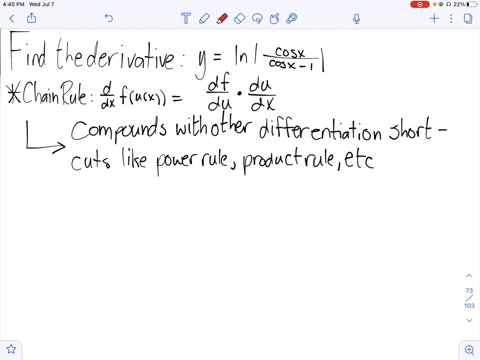 4:40 PM Wed Jul 7
22%
Find the derivative: y = ln|cosx/cosx-1|
*Chain Rule: d/dx f(u(x)) = df/du · du/dx
Compounds with other differentiation short-
cuts like power rule, product rule, etc
73
/
103